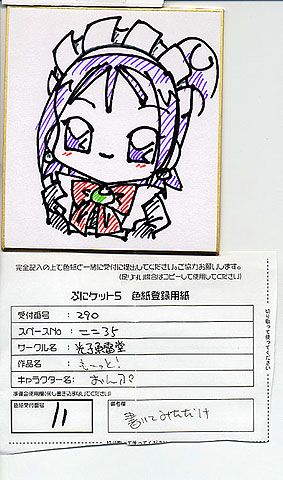 完全記入の上で色紙と一緒に受付に提出してください。ご協力お願いします。
(足りない場合はコピーして使用してください)
ぷにケット5 色紙登録用紙
受付番号 : 290
スペースNo : ニニ35
サークル名 :
作品名 : も〜っと!
キャラクター名: おんぷ
準備会使用欄(何も書き込まないでください)
色紙受付番号
11
備考欄
書いてみただけ